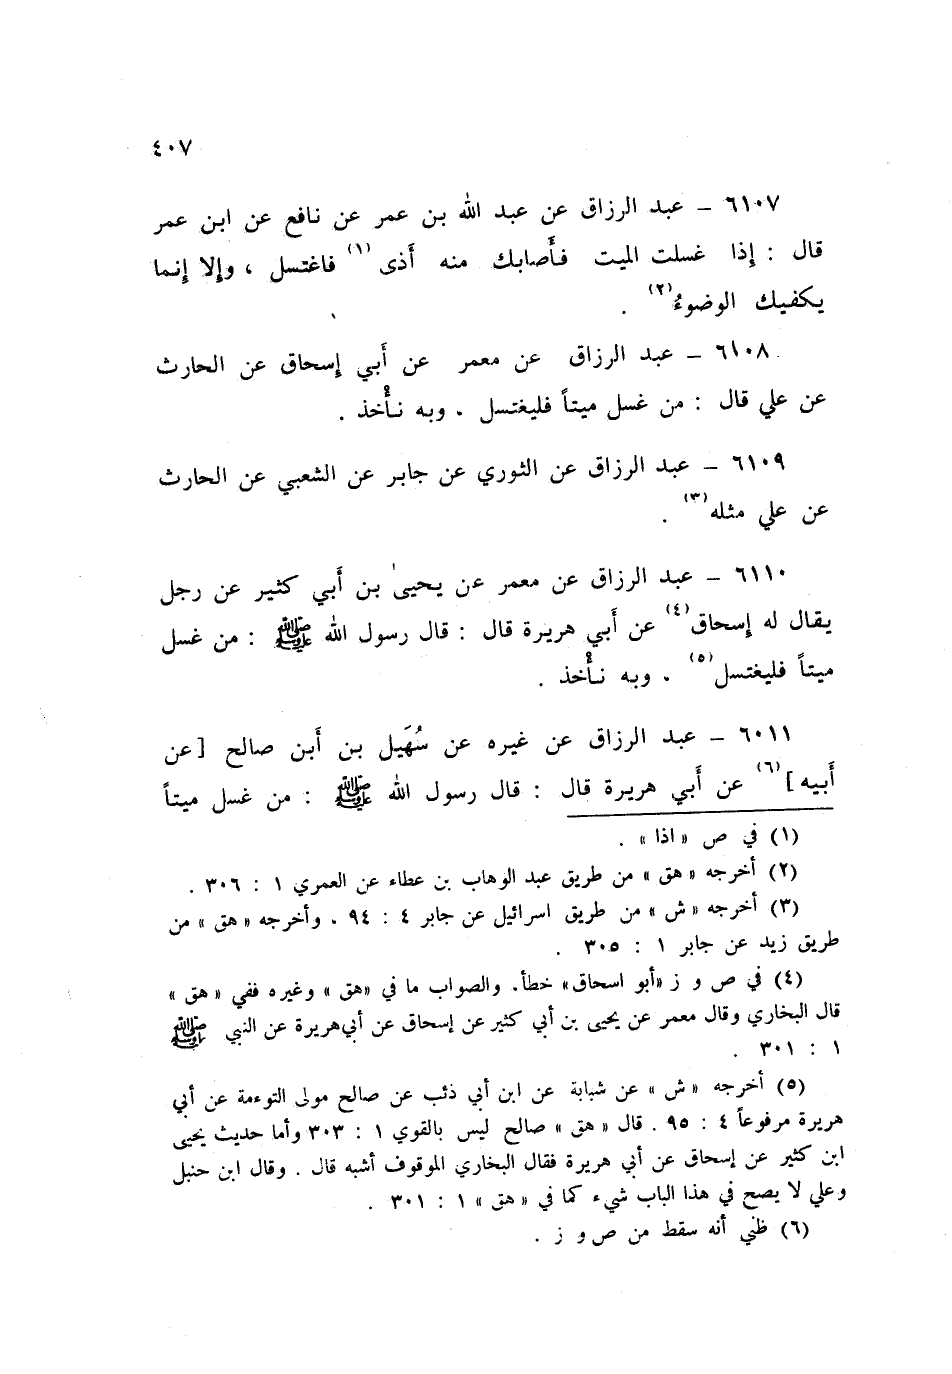 ٤٠٧
٦١٠٧ – عبد الرزاق عن عبد الله بن عمر عن نافع عن ابن عمر
قال : إذا غسلت الميت فأصابك منه أذى (١) فاغتسل ، وإلا إنما
يكفيك الوضوءُ (٢) .
٦١٠٨ – عبد الرزاق عن معمر عن أبي إسحاق عن الحارث
عن علي قال : من غسل ميتاً فليغتسل . وبه نأْخذ .
٦١٠٩ – عبد الرزاق عن الثوري عن جابر عن الشعبي عن الحارث
عن علي مثله (٣) .
٦١١٠ – عبد الرزاق عن معمر عن يحيىٰ بن أبي كثير عن رجل
يقال له إسحاق (٤) عن أبي هريرة قال : قال رسول الله ﷺ : من غسل
ميتاً فليغتسل (٥) . وبه نأْخذ .
٦٠١١ – عبد الرزاق عن غيره عن سُهَيل بن أبن صالح [عن
أبيه] (٦) عن أبي هريرة قال : قال رسول الله ﷺ : من غسل ميتاً
(١) في ص « اذا » .
(٢) أخرجه « هق » من طريق عبد الوهاب بن عطاء عن العمري ١ : ٣٠٦ .
(٣) أخرجه « ش » من طريق اسرائيل عن جابر ٤ : ٩٤ . وأخرجه « هق » من
طريق زيد عن جابر ١ : ٣٠٥ .
(٤) في ص و ز «أبو اسحاق» خطأ. والصواب ما في «هق» وغيره ففي « هق »
قال البخاري وقال معمر عن يحيى بن أبي كثير عن إسحاق عن أبي هريرة عن النبي ﷺ
١ : ٣٠١ .
(٥) أخرجه « ش » عن شبابة عن ابن أبي ذئب عن صالح مولى التوءمة عن أبي
هريرة مرفوعاً ٤ : ٩٥ . قال « هق » صالح ليس بالقوي ١ : ٣٠٣ وأما حديث يحيى
ابن كثير عن إسحاق عن أبي هريرة فقال البخاري الموقوف أشبه قال . وقال ابن حنبل
وعلي لا يصح في هذا الباب شيء كما في « هق » ١ : ٣٠١ .
(٦) ظني أنه سقط من ص و ز .